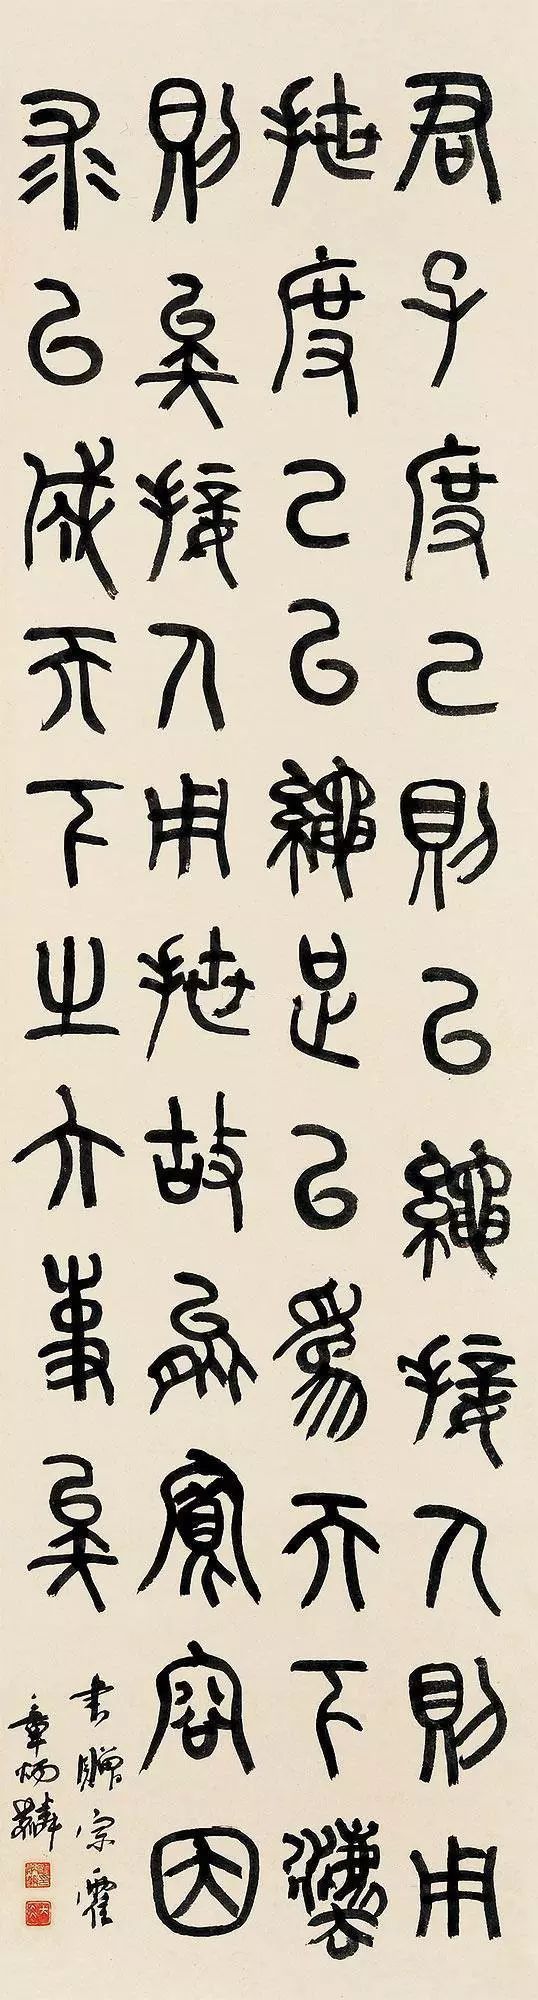 君子度己則以繩接人則用
抴度己以繩足以為天下灋
則矣接人用抴故能寬容因
求以成天下之大事矣
書贈宗霍
章炳麟